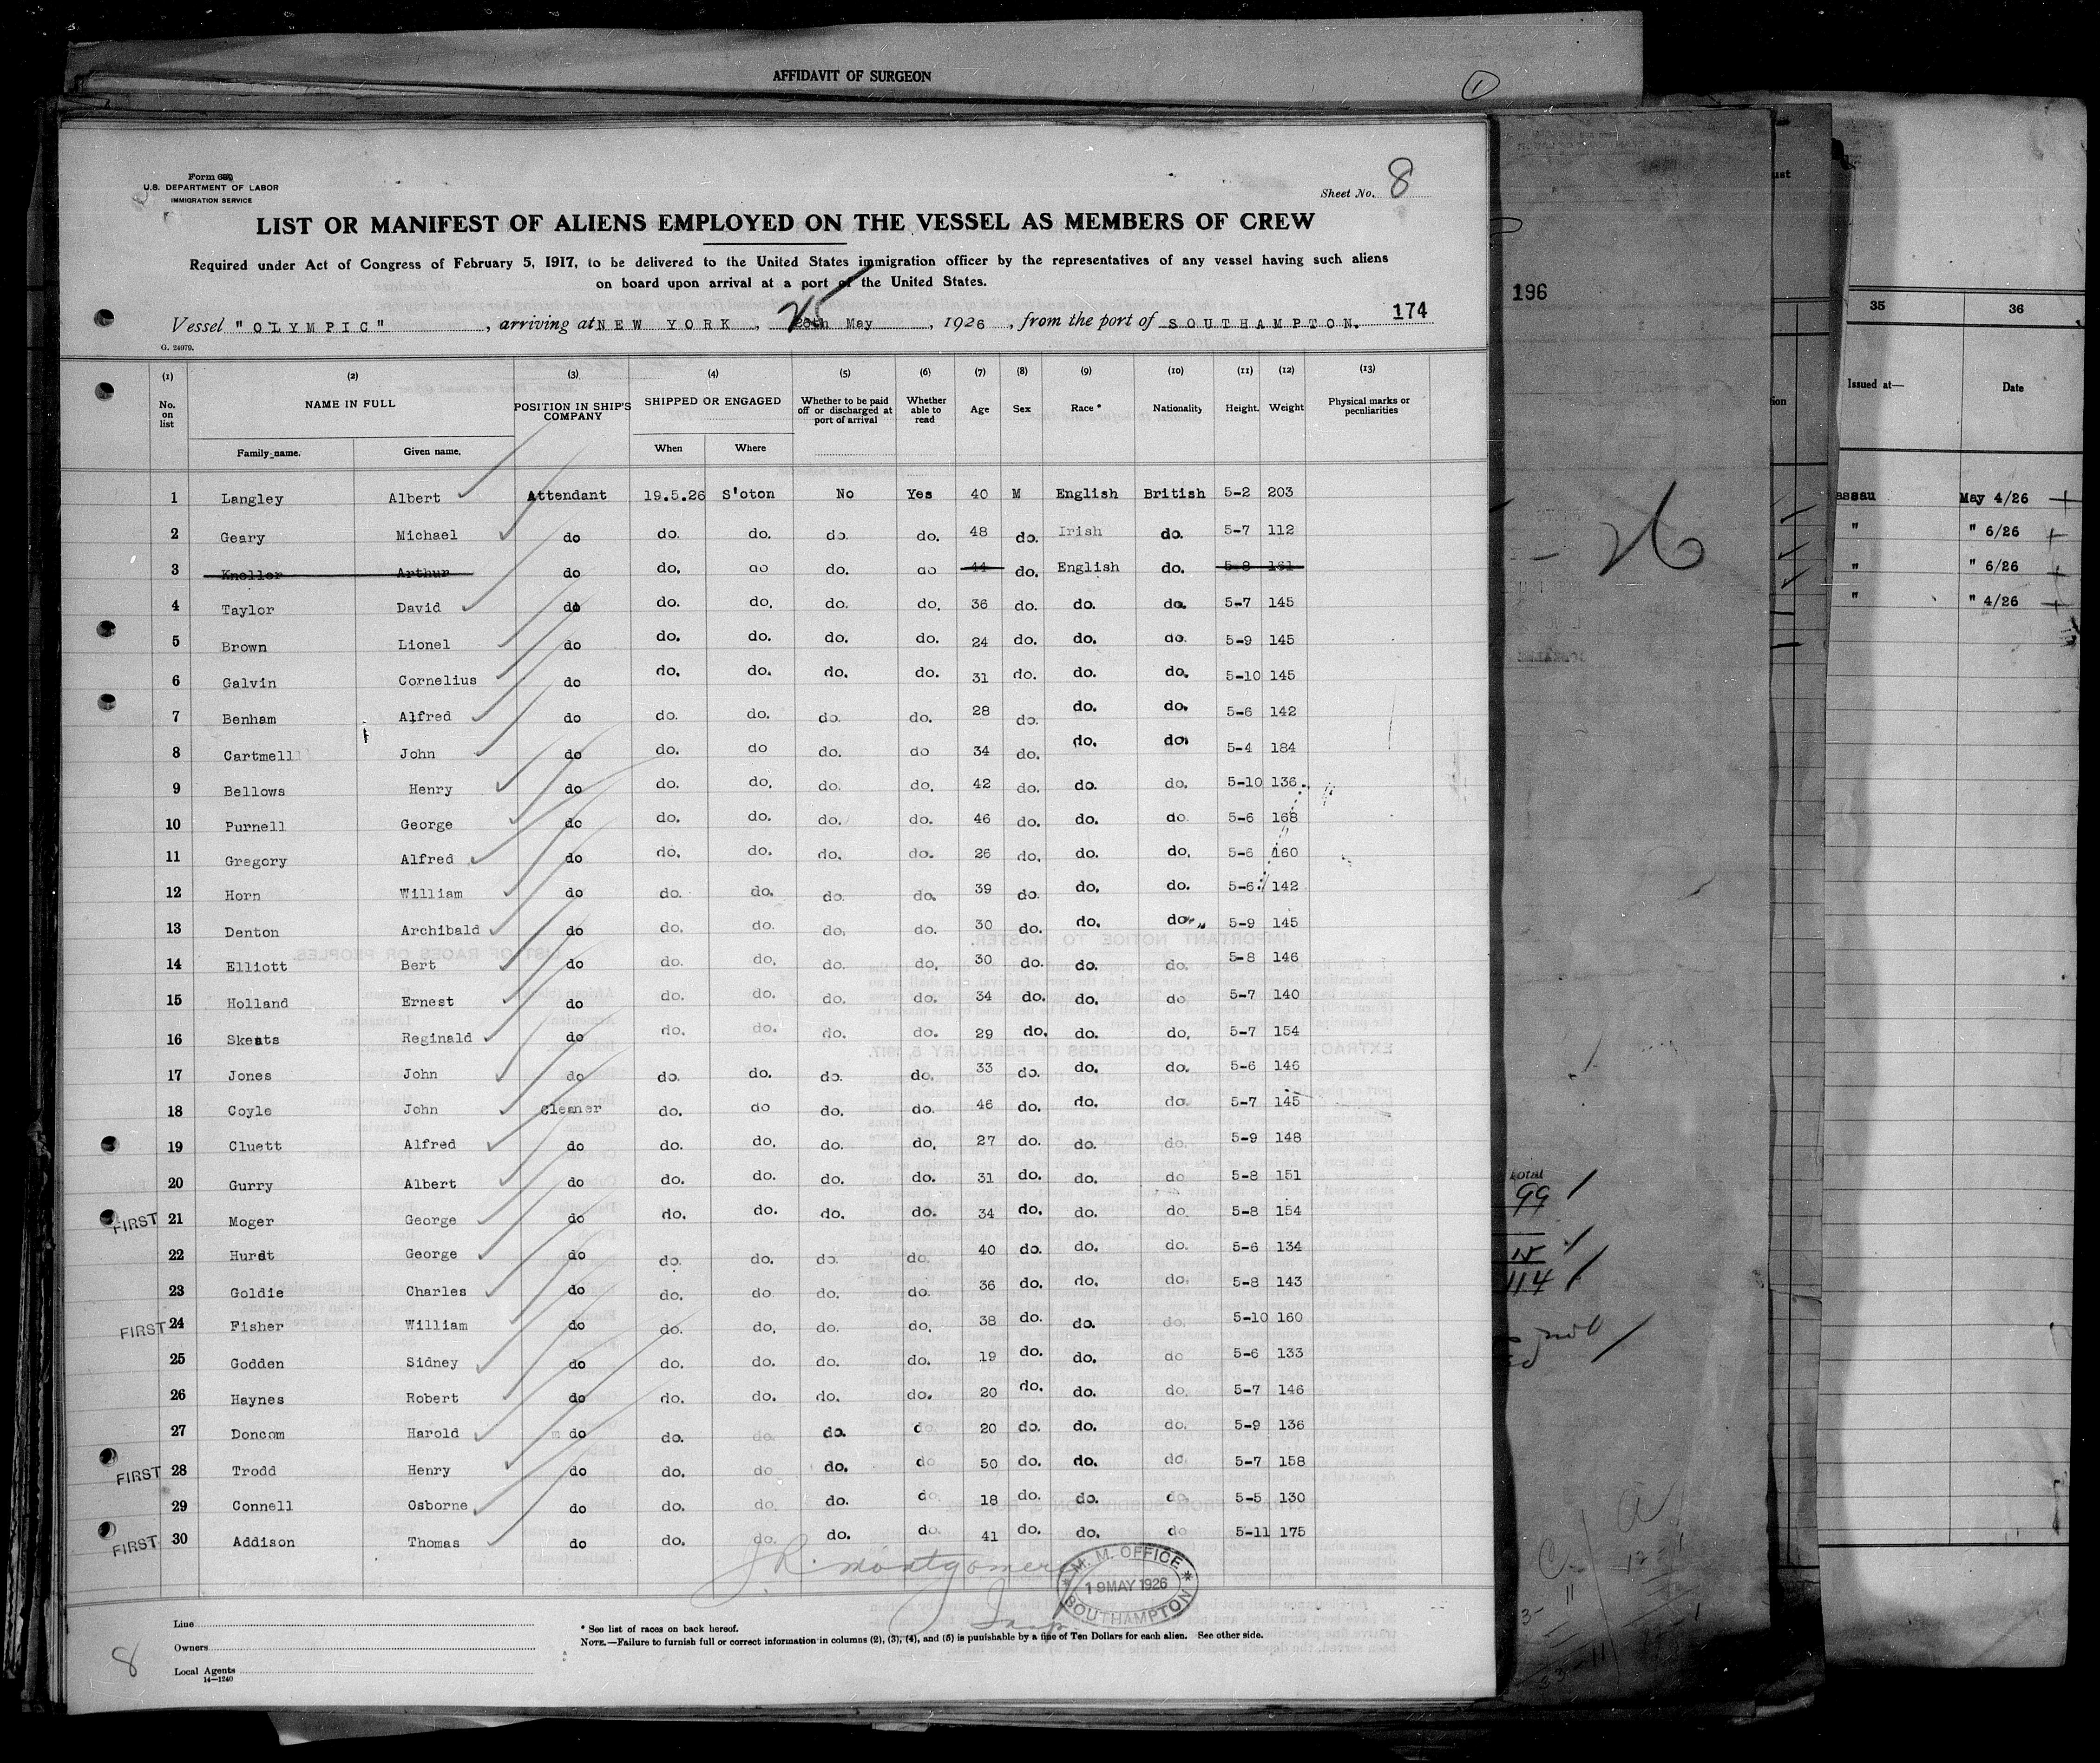 AFFIDAVIT OF SURGEON
1
Form 680
U.S. DEPARTMENT OF LABOR
IMMIGRATION SERVICE
Sheet No. 8
LIST OR MANIFEST OF ALIENS EMPLOYED ON THE VESSEL AS MEMBERS OF CREW
Required under Act of Congress of February 5, 1917, to be delivered to the United States immigration officer by the representatives of any vessel having such aliens
on board upon arrival at a port of the United States.
174
Vessel "OLYMPIC", arriving at NEW YORK, 25 May, 1926, from the port of SOUTHAMPTON.
G. 24979.
(1) (2) (3) (4) (5) (6) (7) (8) (9) (10) (11) (12) (13)
No. on list NAME IN FULL POSITION IN SHIP'S COMPANY SHIPPED OR ENGAGED Whether to be paid off or discharged at port of arrival Whether able to read Age Sex Race * Nationality Height. Weight Physical marks or peculiarities
Family name. Given name. When Where
1 Langley Albert Attendant 19.5.26 S'oton No Yes 40 M English British 5-2 203
2 Geary Michael do do. do. do. do. 48 do. Irish do. 5-7 112
3 Kneller Arthur do do. do do. do 44 do. English do. 5-8 161
4 Taylor David do do. do. do. do. 36 do. do. do. 5-7 145
5 Brown Lionel do do. do. do. do. 24 do. do. do. 5-9 145
6 Galvin Cornelius do do. do. do. do. 31 do. do. do. 5-10 145
7 Benham Alfred do do. do. do. do. 28 do. do. do. 5-6 142
8 Cartmell John do do. do do. do 34 do. do. do. 5-4 184
9 Bellows Henry do do. do. do. do. 42 do. do. do. 5-10 136
10 Purnell George do do. do. do. do. 46 do. do. do 5-6 168
11 Gregory Alfred do do. do. do. do. 26 do. do. do. 5-6 160
12 Horn William do do. do. do. do. 39 do. do. do. 5-6 142
13 Denton Archibald do do. do. do. do. 30 do. do. do. 5-9 145
14 Elliott Bert do do. do. do. do. 30 do. do. do. 5-8 146
15 Holland Ernest do do. do. do. do. 34 do. do. do 5-7 140
16 Skeats Reginald do do. do. do. do. 29 do. do. do. 5-7 154
17 Jones John do do. do. do. do. 33 do. do. do. 5-6 146
18 Coyle John Cleaner do. do do. do. 46 do. do. do. 5-7 145
19 Cluett Alfred do do. do. do. do. 27 do. do. do. 5-9 148
20 Gurry Albert do do. do. do. do. 31 do. do. do 5-8 151
FIRST 21 Moger George do do. do. do. do. 34 do. do. do. 5-8 154
22 Hurst George do do. do. do. do. 40 do. do. do. 5-6 134
23 Goldie Charles do do. do do. do. 36 do. do. do. 5-8 143
FIRST 24 Fisher William do do. do. do. do. 38 do. do. do. 5-10 160
25 Godden Sidney do do. do. do. do. 19 do. do. do 5-6 133
26 Haynes Robert do do. do. do. do. 20 do. do. do. 5-7 146
27 Doncom Harold do do. do. do. do. 20 do. do. do. 5-9 136
FIRST 28 Trodd Henry do do. do do. do 50 do. do. do 5-7 158
29 Connell Osborne do do. do. do. do. 18 do. do. do. 5-5 130
FIRST 30 Addison Thomas do do. do. do. do. 41 do. do. do 5-11 175
J R Montgomery
Insp.
M. M. OFFICE
19 MAY 1926
SOUTHAMPTON
Line
Owners
Local Agents
14—1240
* See list of races on back hereof.
NOTE.—Failure to furnish full or correct information in columns (2), (3), (4), and (5) is punishable by a fine of Ten Dollars for each alien. See other side.
8
196
26
total
99
15
114
35 36
Issued at— Date
assau May 4/26
" " 6/26
" " 6/26
" " 4/26